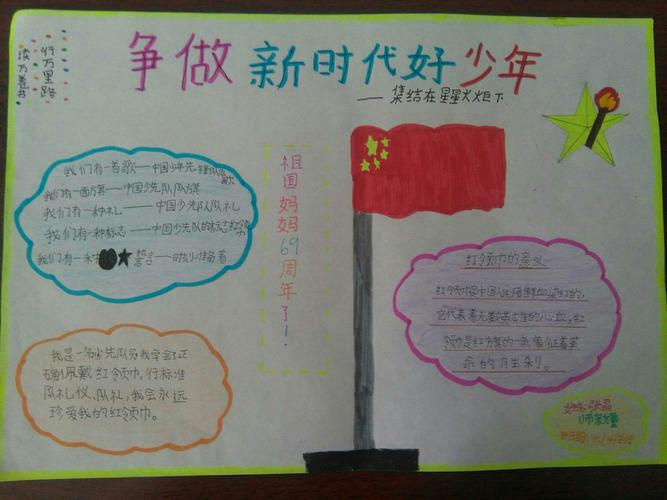 争做新时代好少年
——集结在星星火炬下
行万里路
读万卷书
我们有一首歌——中国少年先锋队队歌
我们有一面旗——中国少先队队旗
我们有一种礼——中国少先队队礼
我们有一种标志——中国少先队的标志红领巾
我们有一种 誓言——时刻准备着
祖国妈妈69周年了!
红领巾的意义
红领巾是中国人民用鲜血染红的,
它代表着无数英雄的心血,红
领巾是红方旗的一角,象征着革
命的月生利。
我是一名少先队员我学会了正
确佩戴红领巾,行标准
队礼仪、队礼,我会永远
珍爱我的红领巾。
姓名:张晶